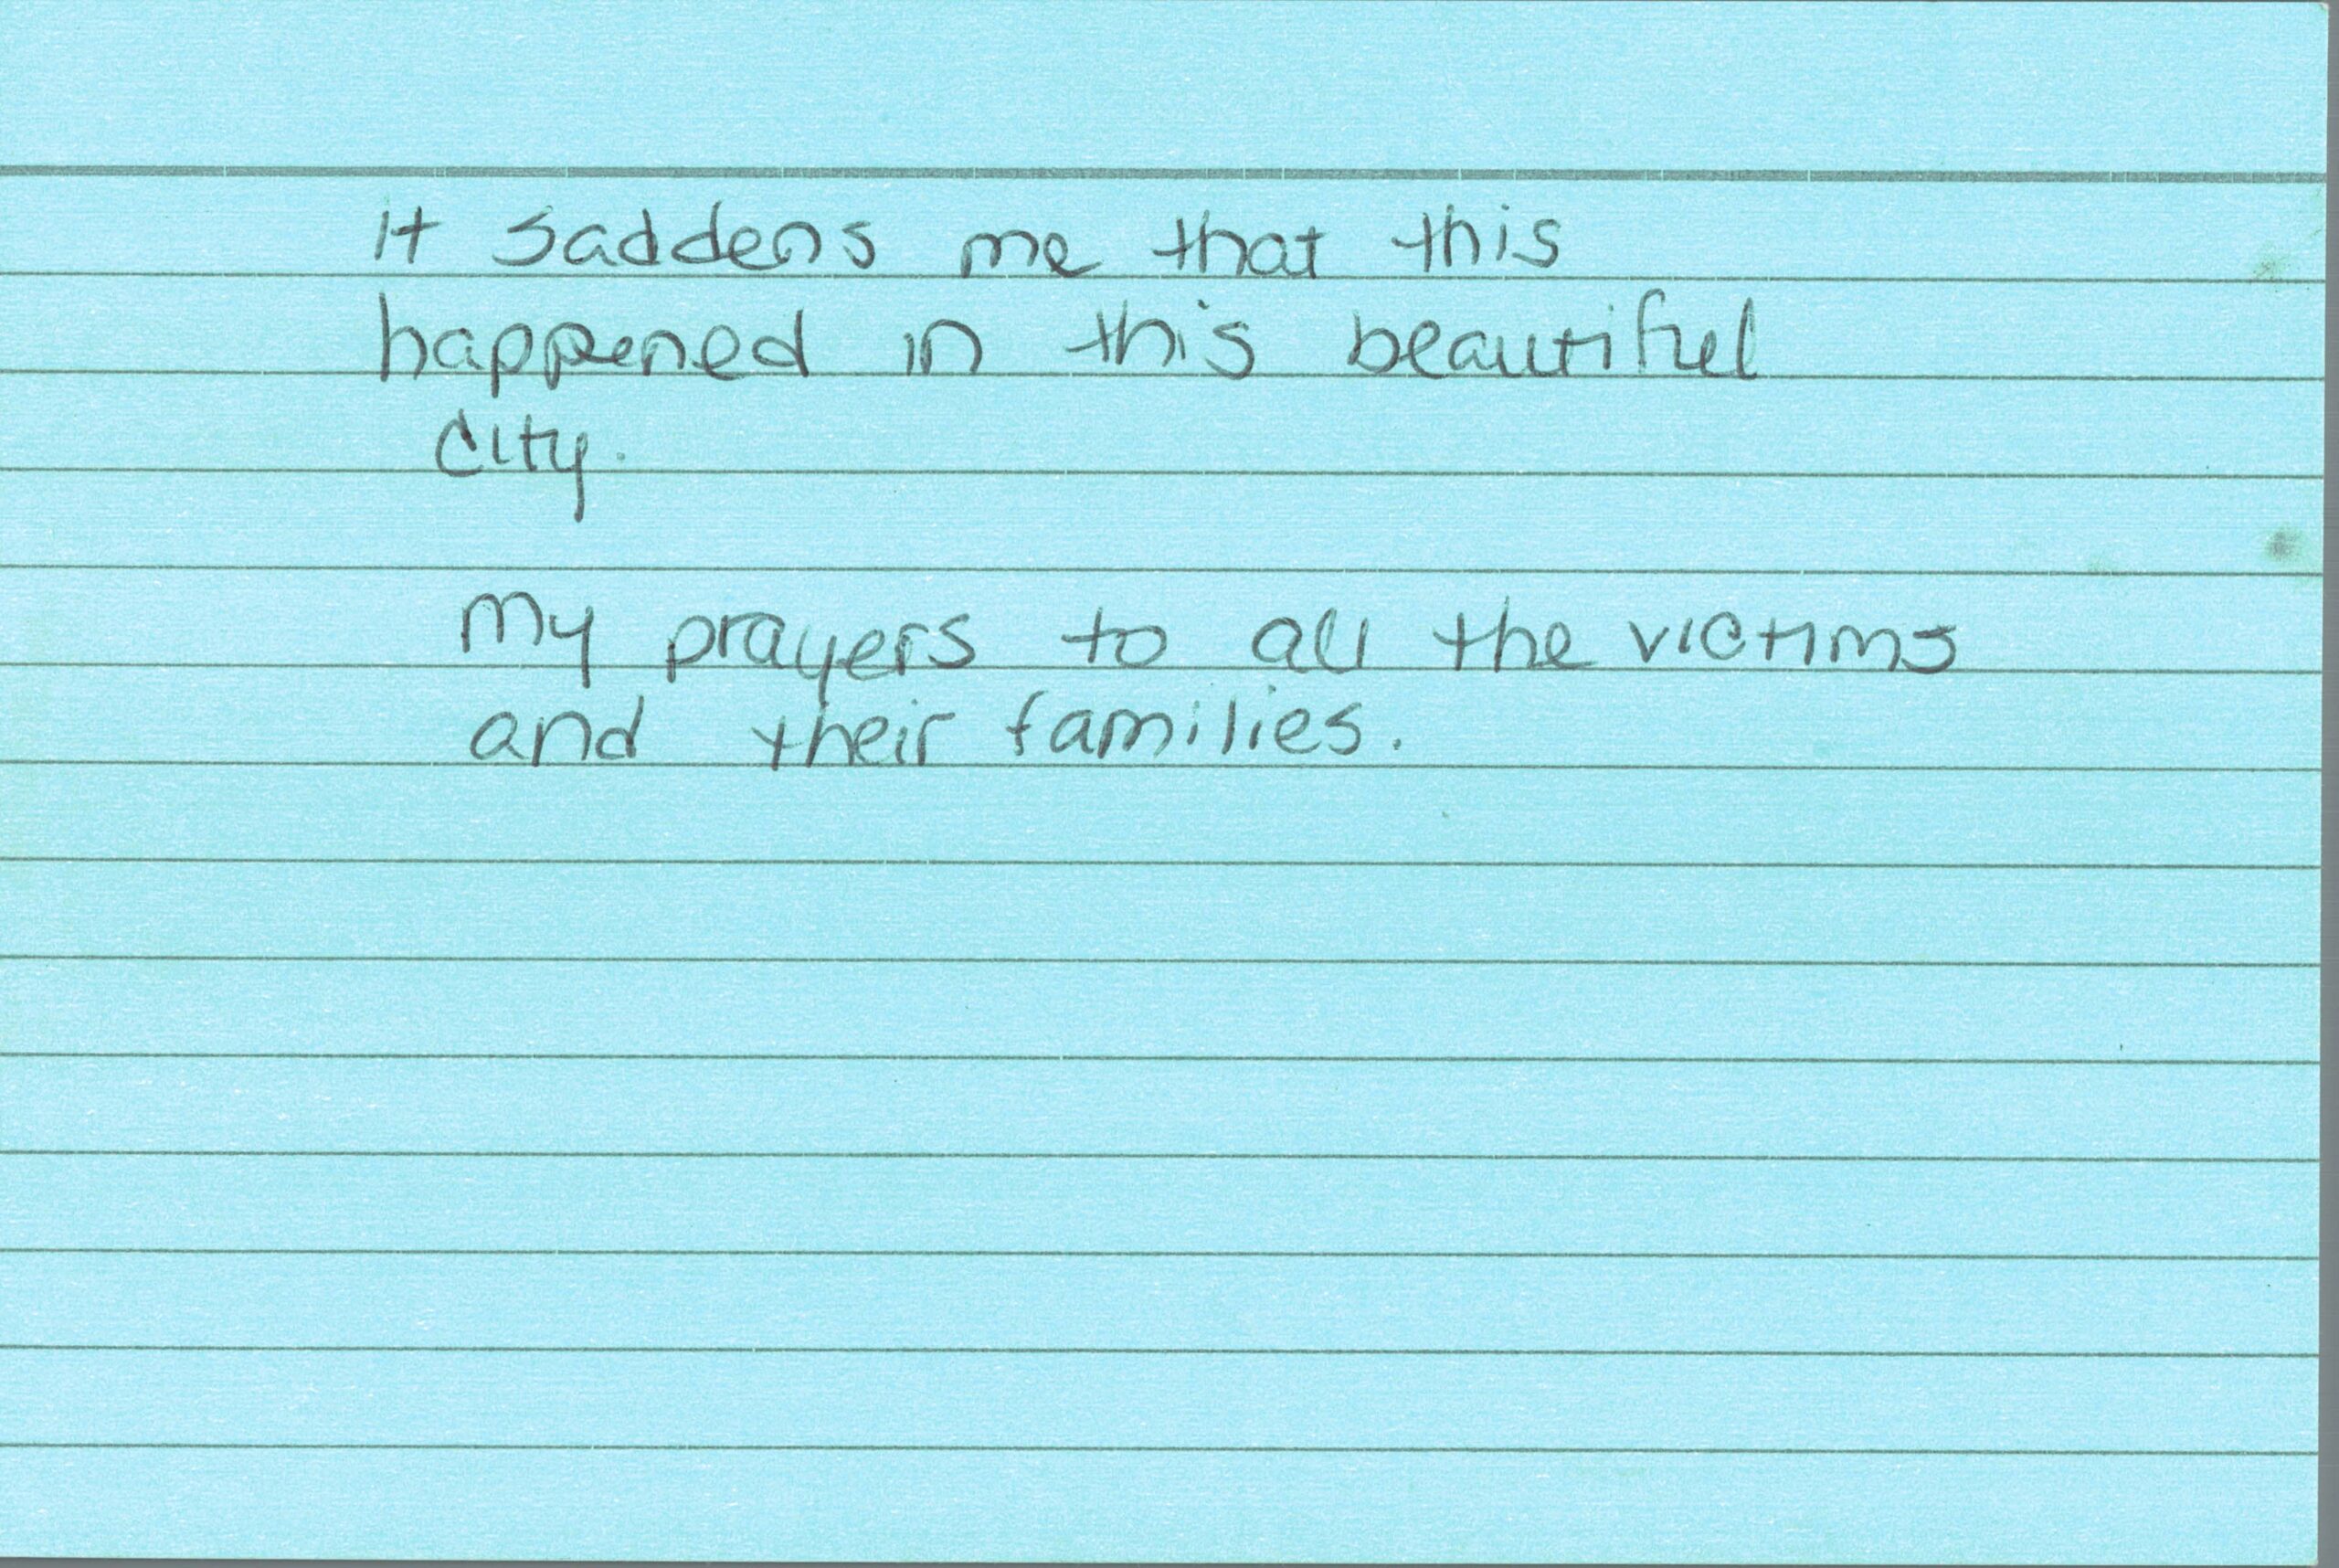 It saddens me that this
happened in this beautiful
City.
My prayers to all the victims
and their families.